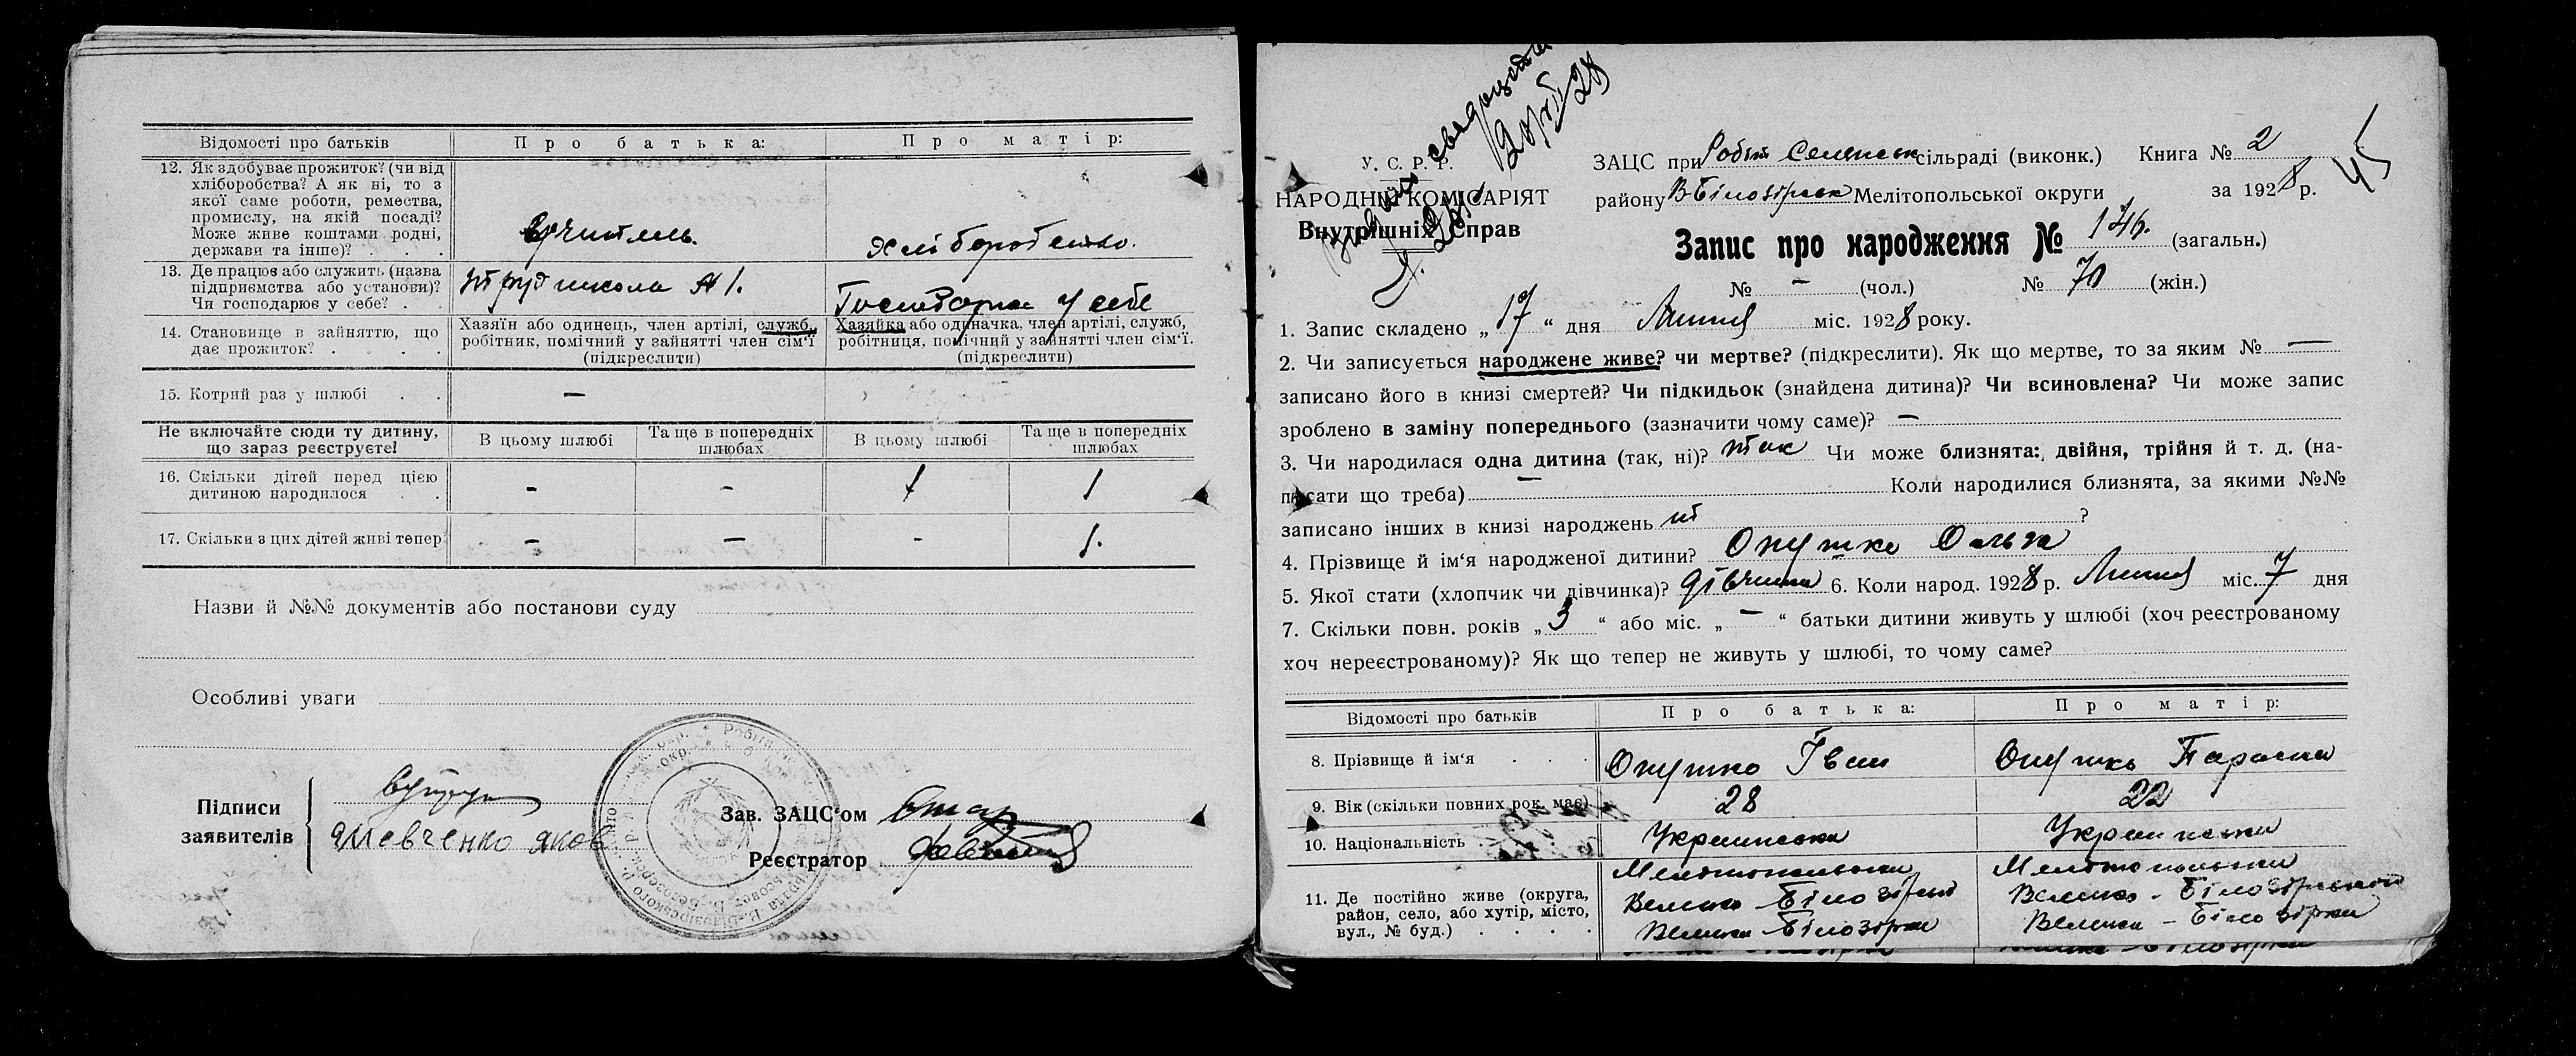 Відомості про батьків Про батька: Про матір:
12. Як здобуває прожиток? (чи від
хліборобства? А як ні, то з
якої саме роботи, ремества,
промислу, на якій посаді?
Може живе коштами родні,
держави та інше)? . . . Вчитель. Хліборобство.
13. Де працює або служить (назва
підприємства або установи)?
Чи господарює у себе? . . Трудшкола №1. Господарює у себе
14. Становище в зайняттю, що
дає прожиток? . . . .
Хазяїн або одинець, член артілі, служб,
робітник, помічний у зайнятті член сім'ї
(підкреслити)
Хазяйка або одиначка, член артілі, служб,
робітниця, помічний у зайнятті член сім'ї.
(підкреслити)
15. Котрий раз у шлюбі . . —
Не включайте сюди ту дитину,
що зараз реєструєте!
В цьому шлюбі Та ще в попередніх шлюбах В цьому шлюбі Та ще в попередніх шлюбах
16. Скільки дітей перед цією
дитиною народилося . . - - 1 1
17. Скільки з цих дітей живі тепер - - - 1.
Назви й №№ документів або постанови суду
Особливі уваги
Підписи
заявителів
Шевченко Яков
Зав. ЗАЦС'ом
Реєстратор
45
У. С. Р. Р.
НАРОДНІЙ КОМІСАРІЯТ
Внутрішніх Справ
ЗАЦС при сільраді (виконк.) Книга № 2
району В Білозірськ Мелітопольської округи за 1928 р.
Запис про народження № 146. (загальн.)
№ - (чол.) № 70 (жін.)
1. Запис складено „17“ дня Липня міс. 1928 року.
2. Чи записується народжене живе? чи мертве? (підкреслити). Як що мертве, то за яким № —
записано його в книзі смертей? Чи підкидьок (знайдена дитина)? Чи всиновлена? Чи може запис
зроблено в заміну попереднього (зазначити чому саме)? —
3. Чи народилася одна дитина (так, ні)? так Чи може близнята: двійня, трійня й т. д. (на-
писати що треба) — Коли народилися близнята, за якими №№
записано інших в книзі народжень ?
4. Прізвище й ім'я народженої дитини? Опушко Ольга
5. Якої стати (хлопчик чи дівчинка)? дівчинка 6. Коли народ. 1928 р. Липня міс. 7 дня
7. Скільки повн. років „3“ або міс. „—“ батьки дитини живуть у шлюбі (хоч реєстрованому
хоч нереєстрованому)? Як що тепер не живуть у шлюбі, то чому саме?
Відомості про батьків Про батька: Про матір:
8. Прізвище й ім'я . . . Опушко Іван Опушко Параска
9. Вік (скільки повних рок. має) 28 22
10. Національність . Українська Українська
11. Де постійно живе (округа,
район, село, або хутір, місто,
вул., № буд.) . . . .
Мелітопольська Мелітопольська
Велико-Білозірський Велико-Білозірський
Велика-Білозірка Велика-Білозірка